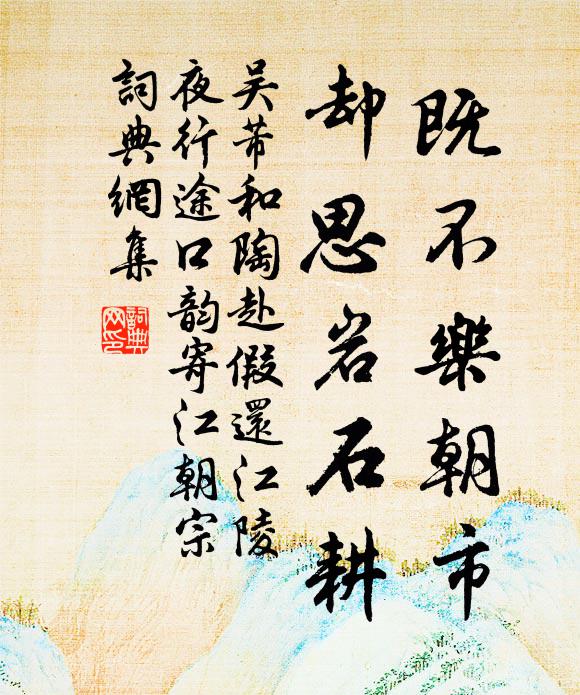 既不樂朝市
却思岩石耕
吴芾和陶赴假還江陵
夜行途口韵寄江朝宗
詞典網集
詞典
网印